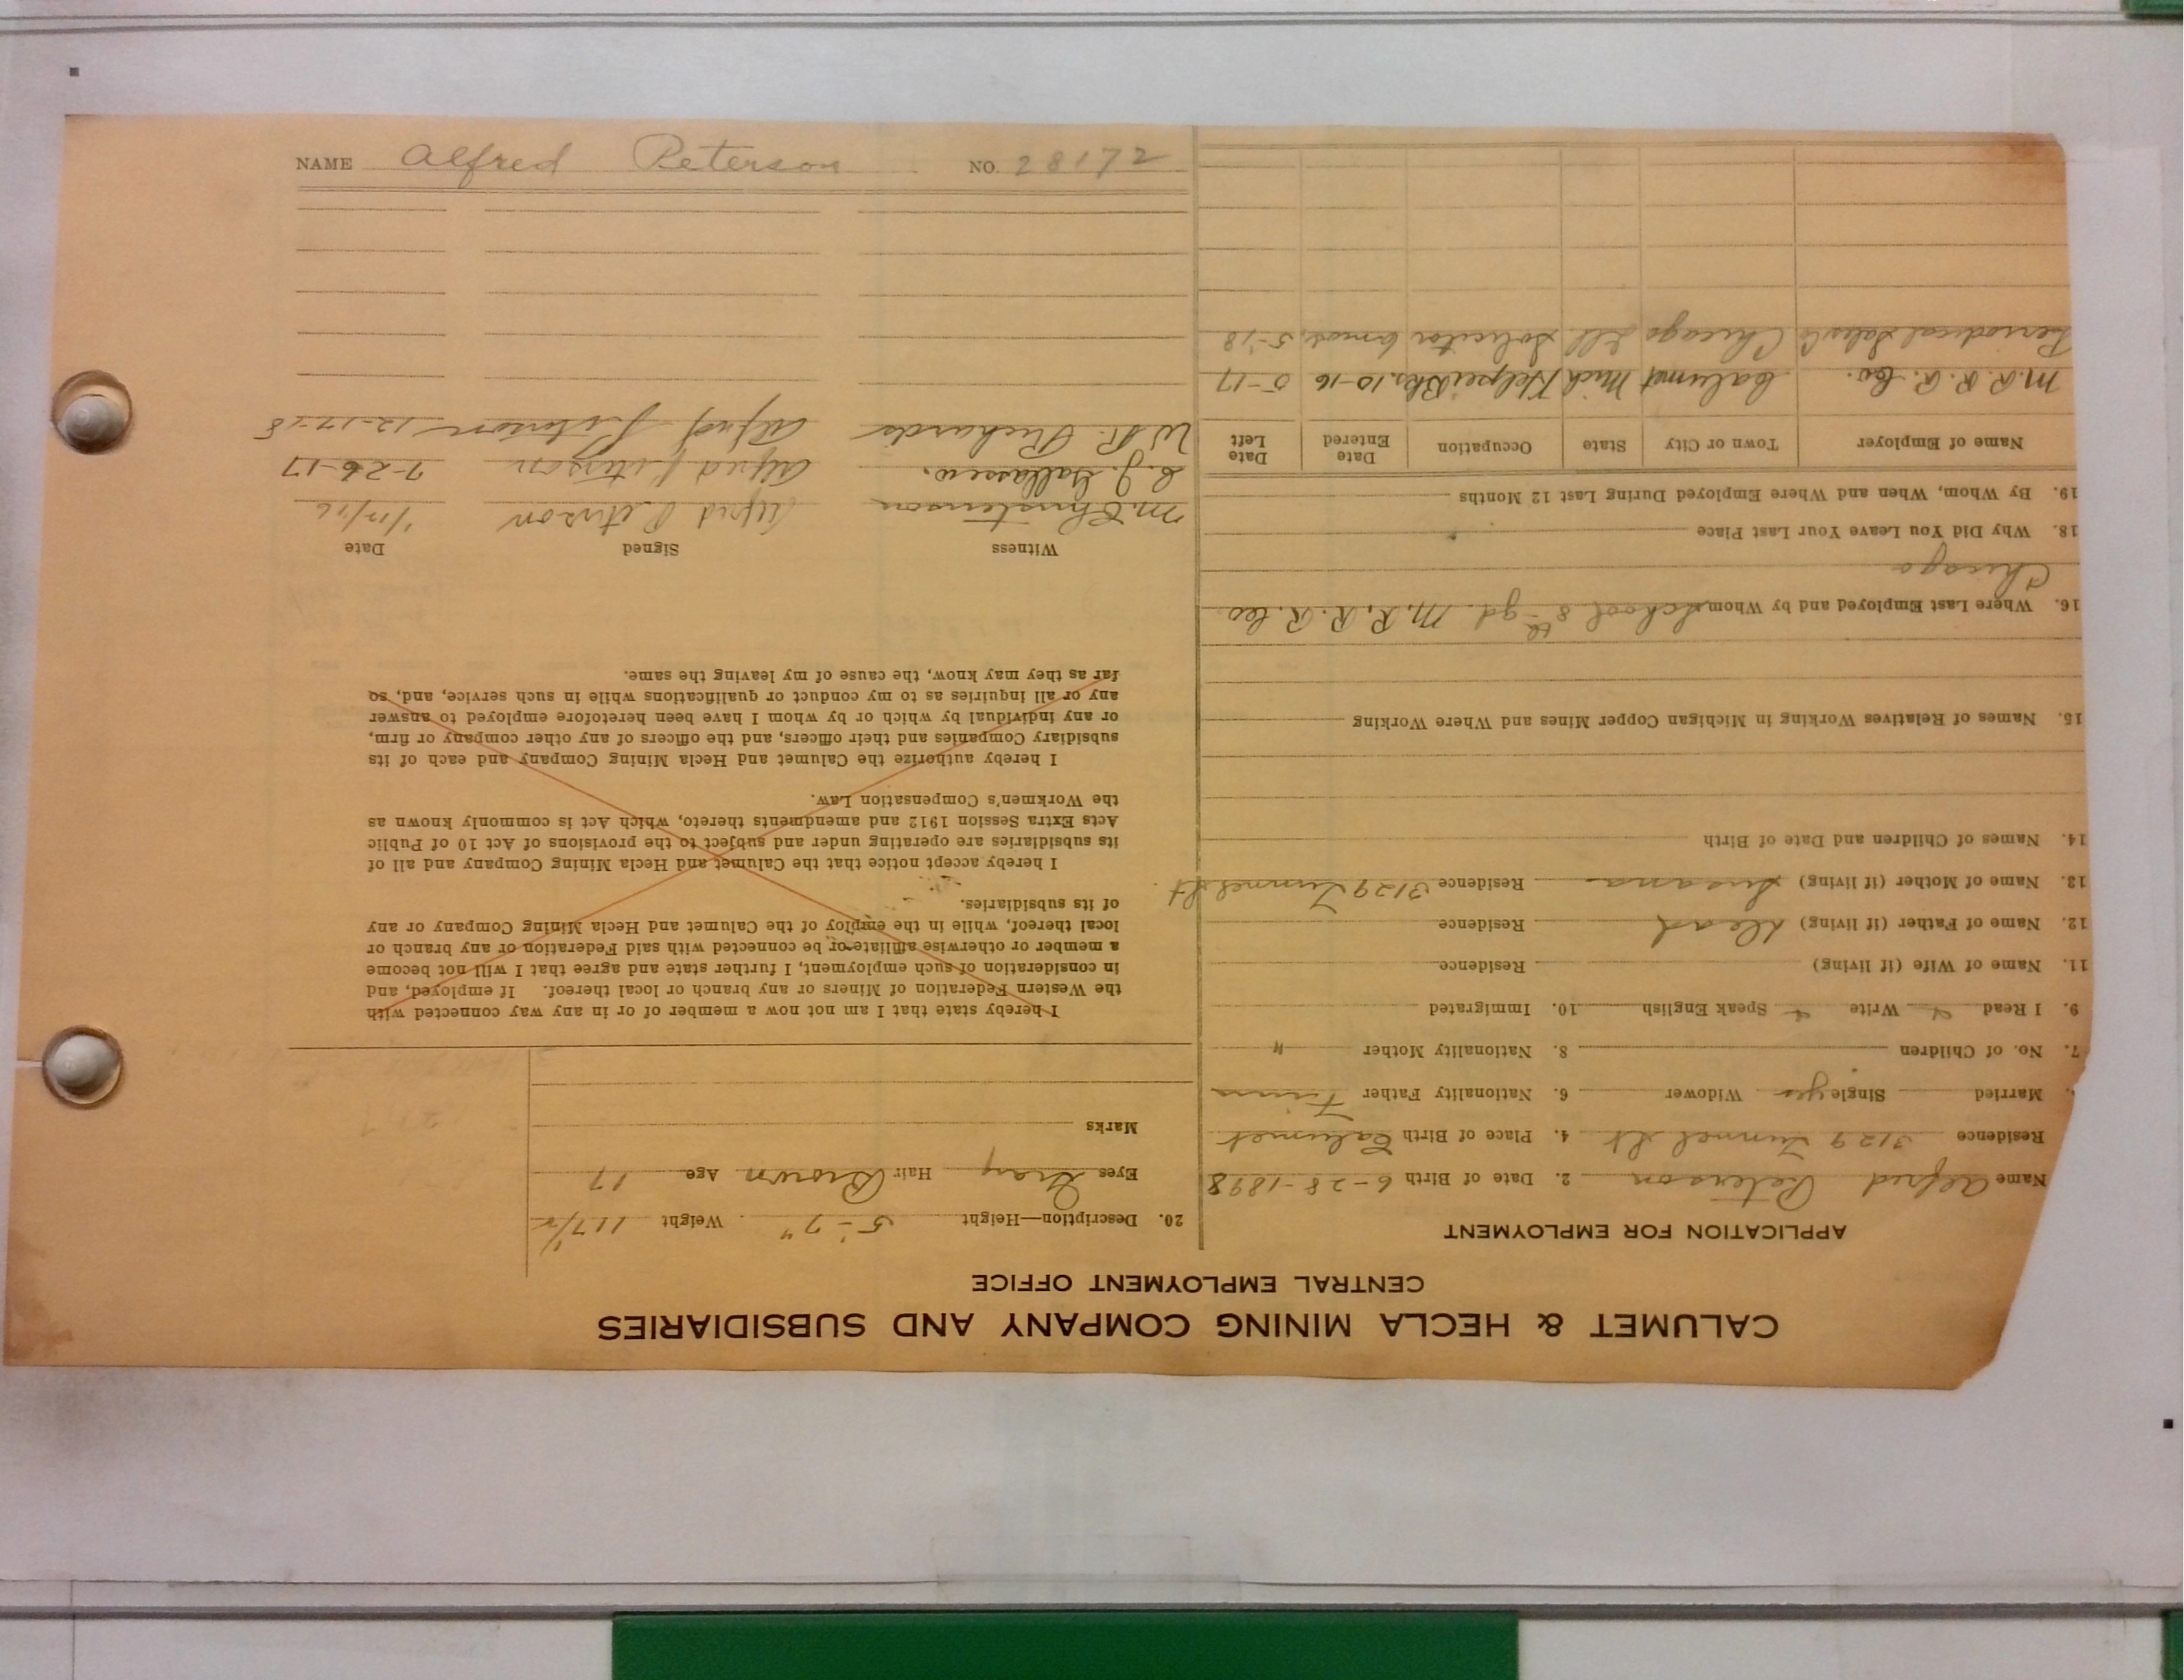 CALUMET & HECLA MINING COMPANY AND SUBSIDIARIES
CENTRAL EMPLOYMENT OFFICE
APPLICATION FOR EMPLOYMENT
Name Alfred Peterson 2. Date of Birth 6-28-1898
Residence 3129 Tunnel St 4. Place of Birth Calumet
Married Single yes Widower 6. Nationality Father Finn
7. No. of Children 8. Nationality Mother "
9. I Read Write Speak English 10. Immigrated
11. Name of Wife (if living) Residence
12. Name of Father (if living) Dead Residence
13. Name of Mother (if living) Susana Residence 3129 Tunnel St.
14. Names of Children and Date of Birth
15. Names of Relatives Working in Michigan Copper Mines and Where Working
16. Where Last Employed and by Whom School 8th gd. M.R.R.R. Co.
Chicago
18. Why Did You Leave Your Last Place
19. By Whom, When and Where Employed During Last 12 Months
Name of Employer Town or City State Occupation Date Entered Date Left
M.R.R.R. Co. Calumet Mich Helper Bks. 10-16 5-17
Periodical Sales Co Chicago Ill Solicitor 6 mos. 5-18
20. Description—Height 5'-7" Weight 117½
Eyes Gray Hair Brown Age 17
Marks
I hereby state that I am not now a member of or in any way connected with
the Western Federation of Miners or any branch or local thereof. If employed, and
in consideration of such employment, I further state and agree that I will not become
a member or otherwise affiliate or be connected with said Federation or any branch or
local thereof, while in the employ of the Calumet and Hecla Mining Company or any
of its subsidiaries.
I hereby accept notice that the Calumet and Hecla Mining Company and all of
its subsidiaries are operating under and subject to the provisions of Act 10 of Public
Acts Extra Session 1912 and amendments thereto, which Act is commonly known as
the Workmen's Compensation Law.
I hereby authorize the Calumet and Hecla Mining Company and each of its
subsidiary Companies and their officers, and the officers of any other company or firm,
or any individual by which or by whom I have been heretofore employed to answer
any or all inquiries as to my conduct or qualifications while in such service, and, so
far as they may know, the cause of my leaving the same.
Witness Signed Date
M. Christenson Alfred Peterson 1/17/16
Alfred Peterson 7-26-17
W.R. Richards Alfred Peterson 12-17-18
NAME Alfred Peterson NO. 28172